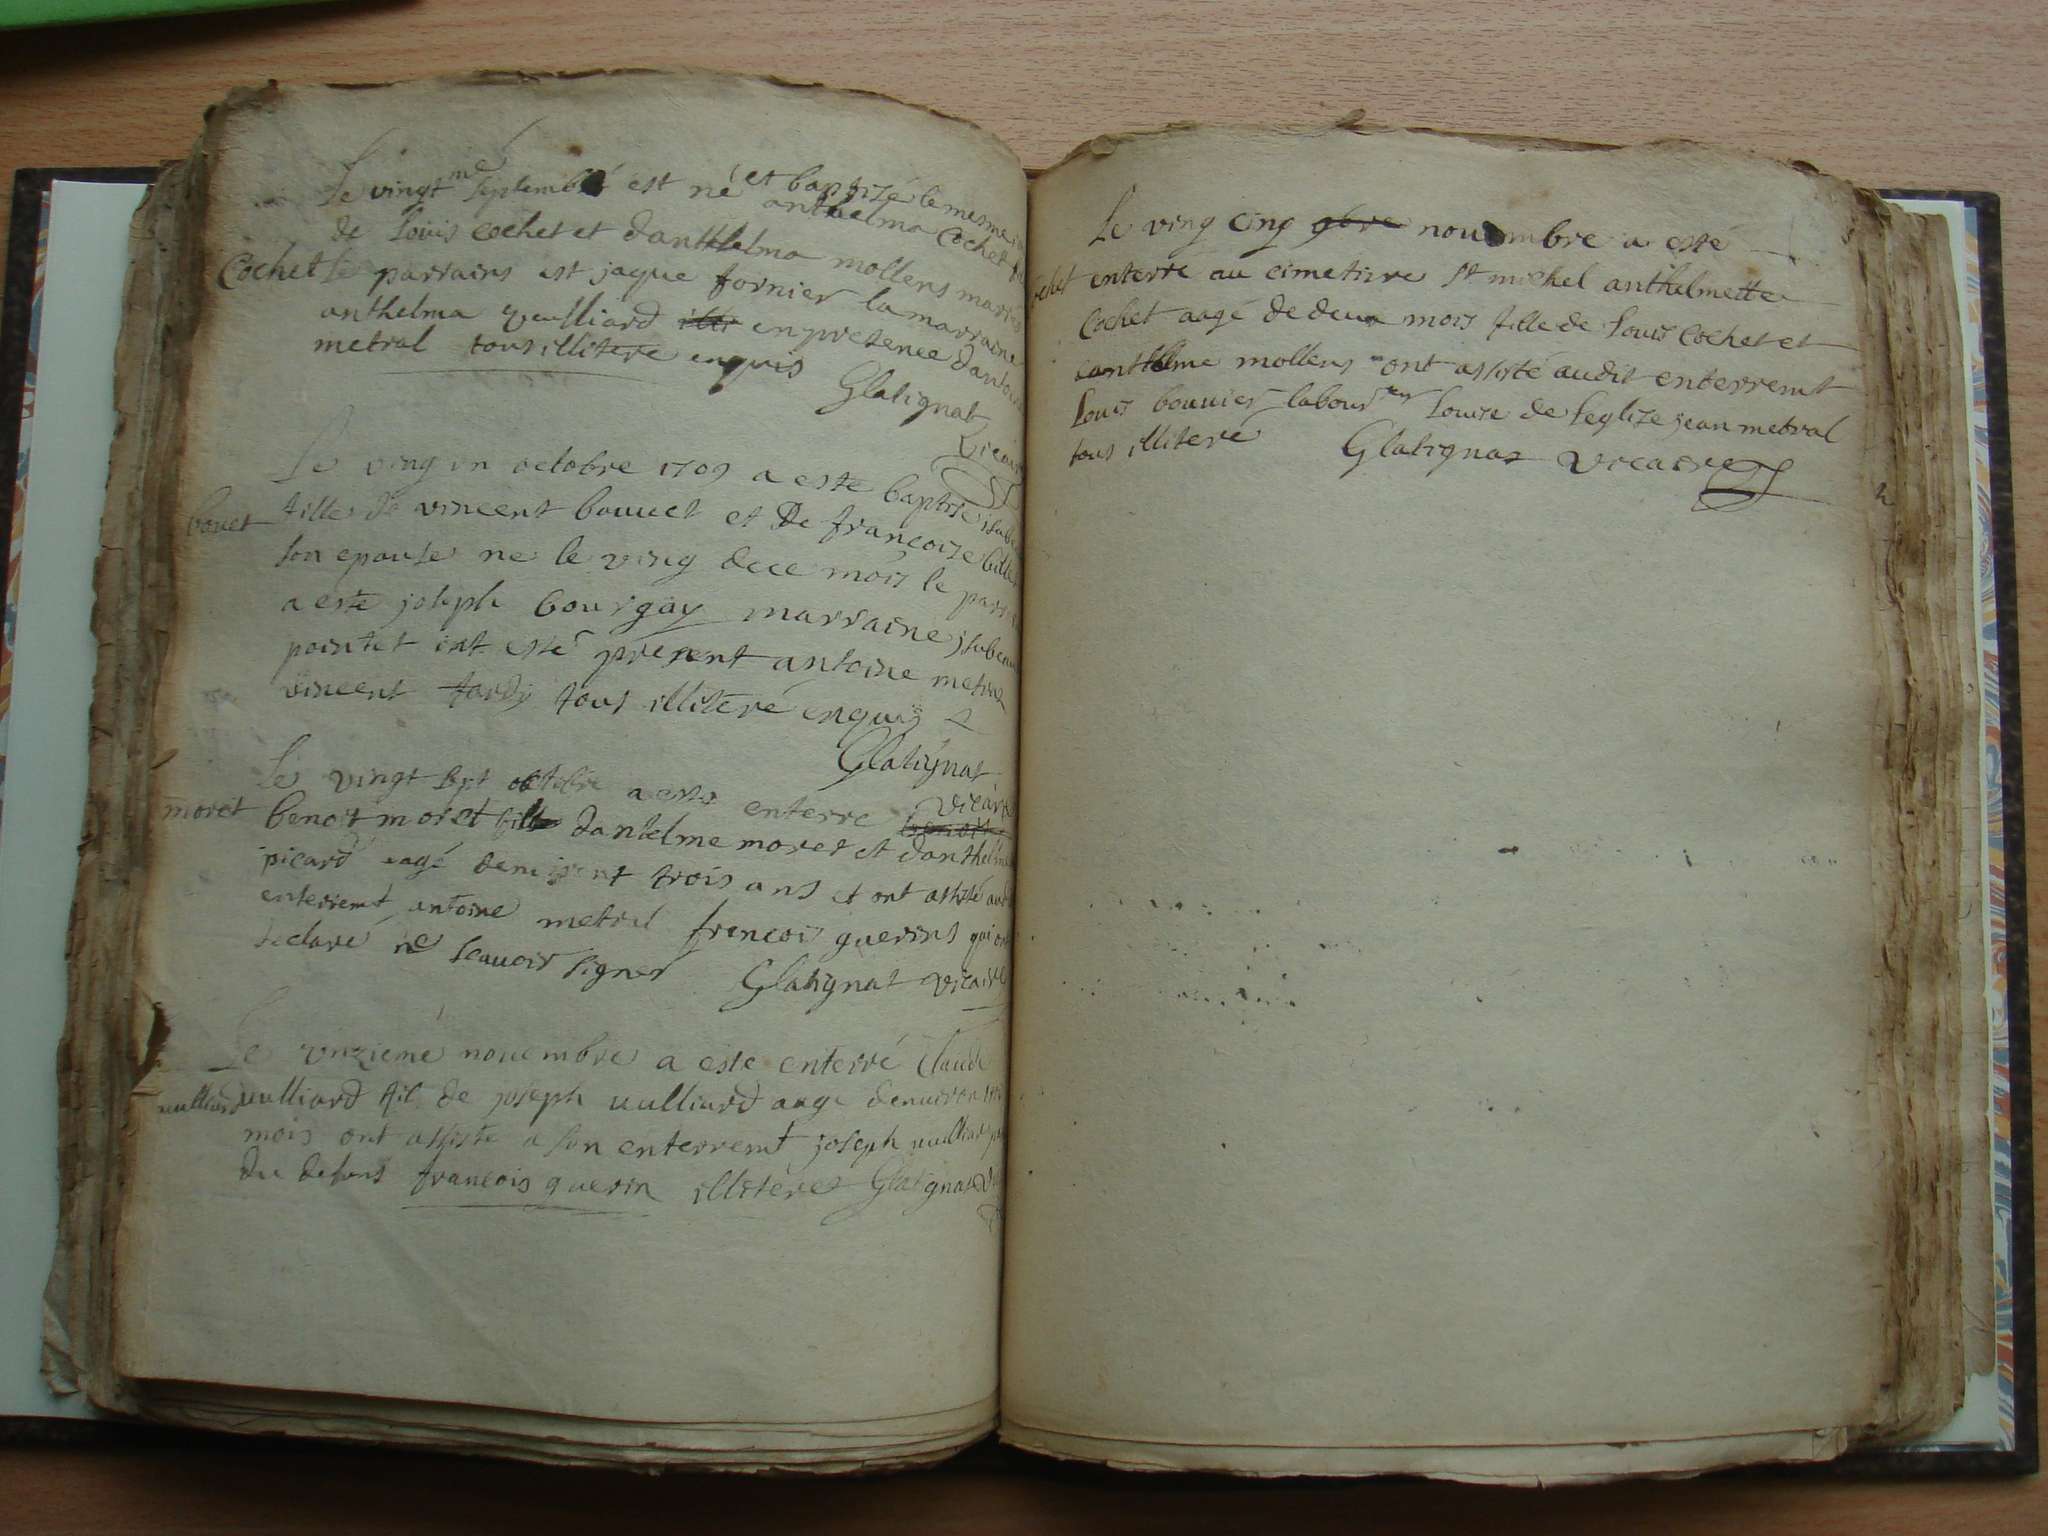 Le vingt me septembre est né et baptizé le mesme
anthelma cochet
de Louis cochet et danthelma mollens mariés
Cochet le parrains est jaque fornier la marraine
anthelma vulliard en presence dantoine
metral tous illitere enquis
Glatignat
Vicaire
Le ving un octobre 1709 a este baptise
bouet fille de vincent bouuet et de francoise
son epouse ne le ving dece mois le
a este joseph bourgay marraine
pointet int esté présent antoine
vincent tardy tous illiteré enquis
Glatignat
vicaire
Le vingt sept octobre a esté enterré
moret benoit moret fille dantelme moret et danthelme
picard aagé denviront trois ans et ont assisté
enterremt antoine metral francois guerins qui ont
declaré ne scauoir signer Glatignat vicaire
Le unzieme nouembre a este enterré Claude
uulliard uulliard fil de joseph uulliard aage denuiron
mois ont assiste a son enterremt joseph uulliard
du defuns francois guerin illitere Glatignat
Le ving cinq nouembre a esté
enterré au cimetire st michel anthelmette
Cochet aagé de deux mois fille de Louis Cochet et
anthelme mollens ont assisté audit enterremt
Louis bouuier laboureur Louise de leglize jean metral
tous illiteré Glatignat vicaire